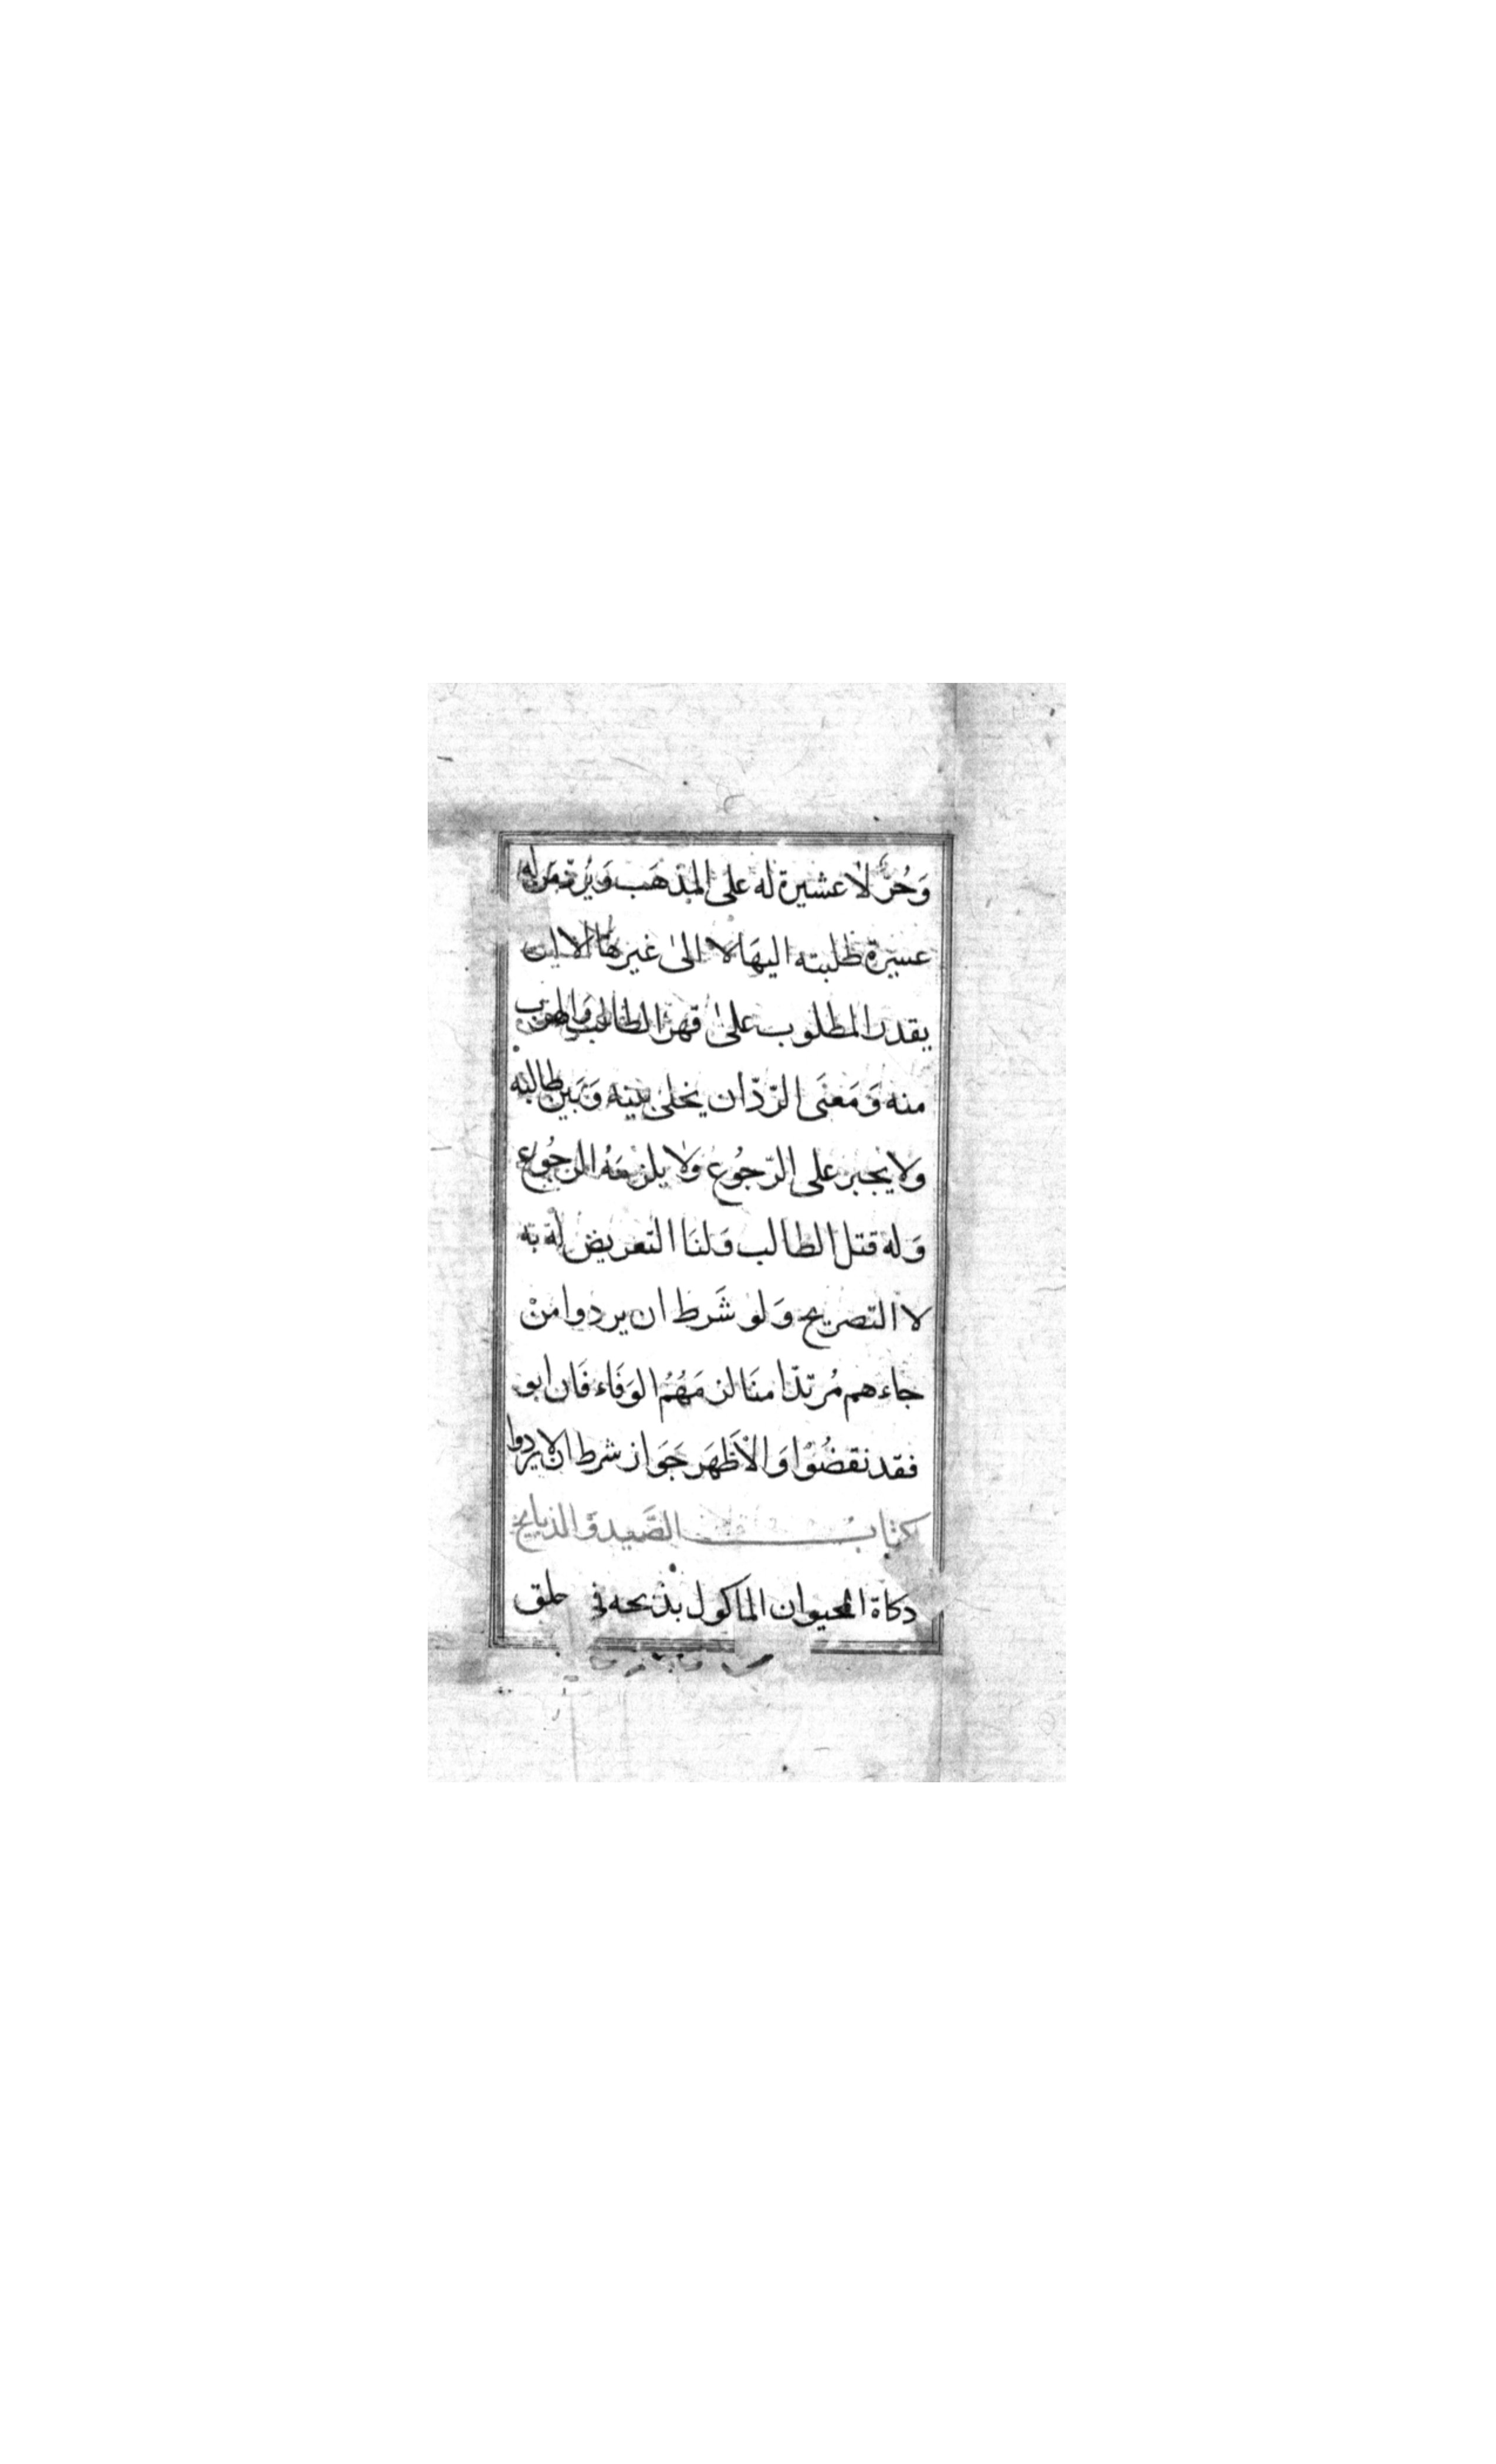 وَحُرٌّ لا عشيرة له على المذهَب وَيُردّ مَن له
عسيرة طلبته اليهَا لا الىٰ غيرهَا الا ان
يقدر المطلوب علىٰ قهر الطالب وَالهرب
منه وَمَعنَى الرّدّ ان يخلى بينه وَبَين طالبه
ولا يجبر على الرّجوُع وَلا يلزمَهُ الرجوُع
وَله قتل الطالب وَلنَا التعريض له به
لا التصريح وَلو شَرط ان يردوا منْ
جاءهم مُرتدّا منَا لزمَهُمُ الوَفَاء فَان ابو
فقد نقضُوْا وَالاْظهَر جَوَاز شرط ان لا يردوا
كتابُ الصَّيد وَالذبايح
دكاة الحيوان الماكول بذبحه في حلق